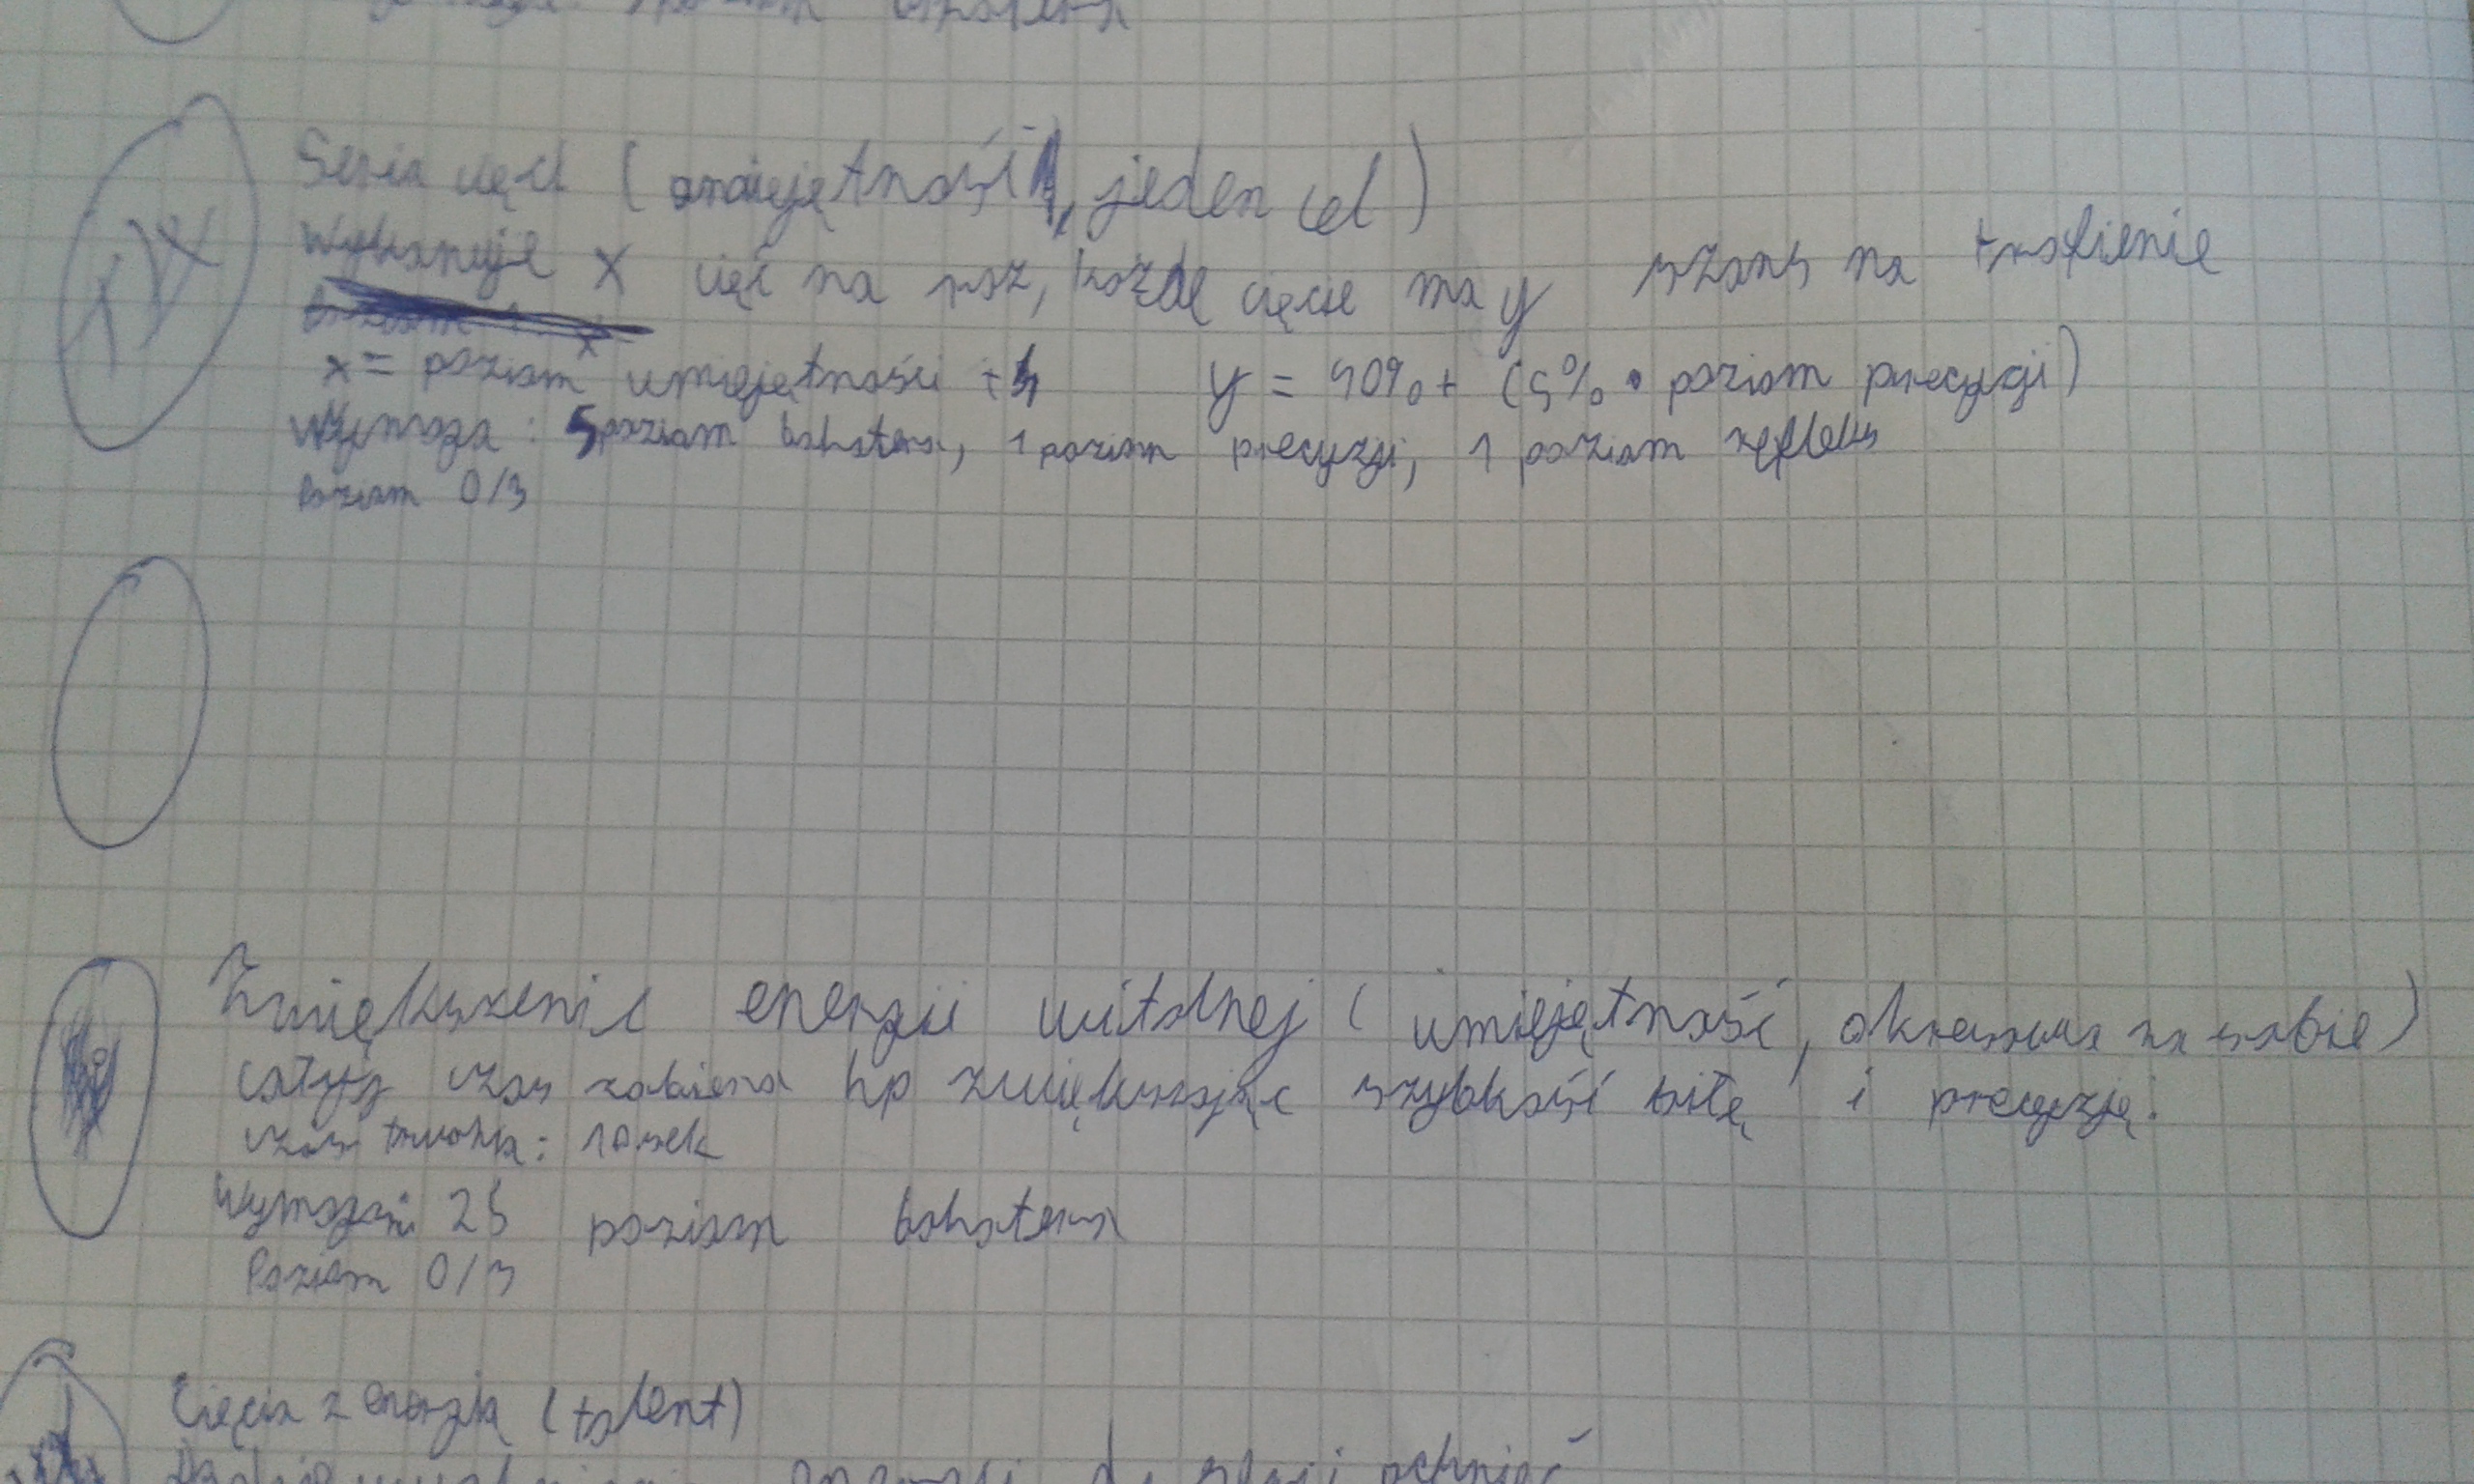 poziom bohatera
Seria cięć (umiejętność, jeden cel)
Wykonuje x cięć na raz, każde cięcie ma y szans na trafienie
x = poziom umiejętności + 4 y = 40% + (5% • poziom precyzji)
Wymaga: 5 poziom bohatera, 1 poziom precyzji, 1 poziom refleksu
Poziom 0/3
Zwiększenie energii witalnej (umiejętność, okresowa na siebie)
cały czas zabiera hp zwiększając szybkość siłę i precyzję.
czas trwania: 10sek
Wymagani 25 poziom bohatera
Poziom 0/3
Cięcia z energią (talent)
energii do serii pchnięć